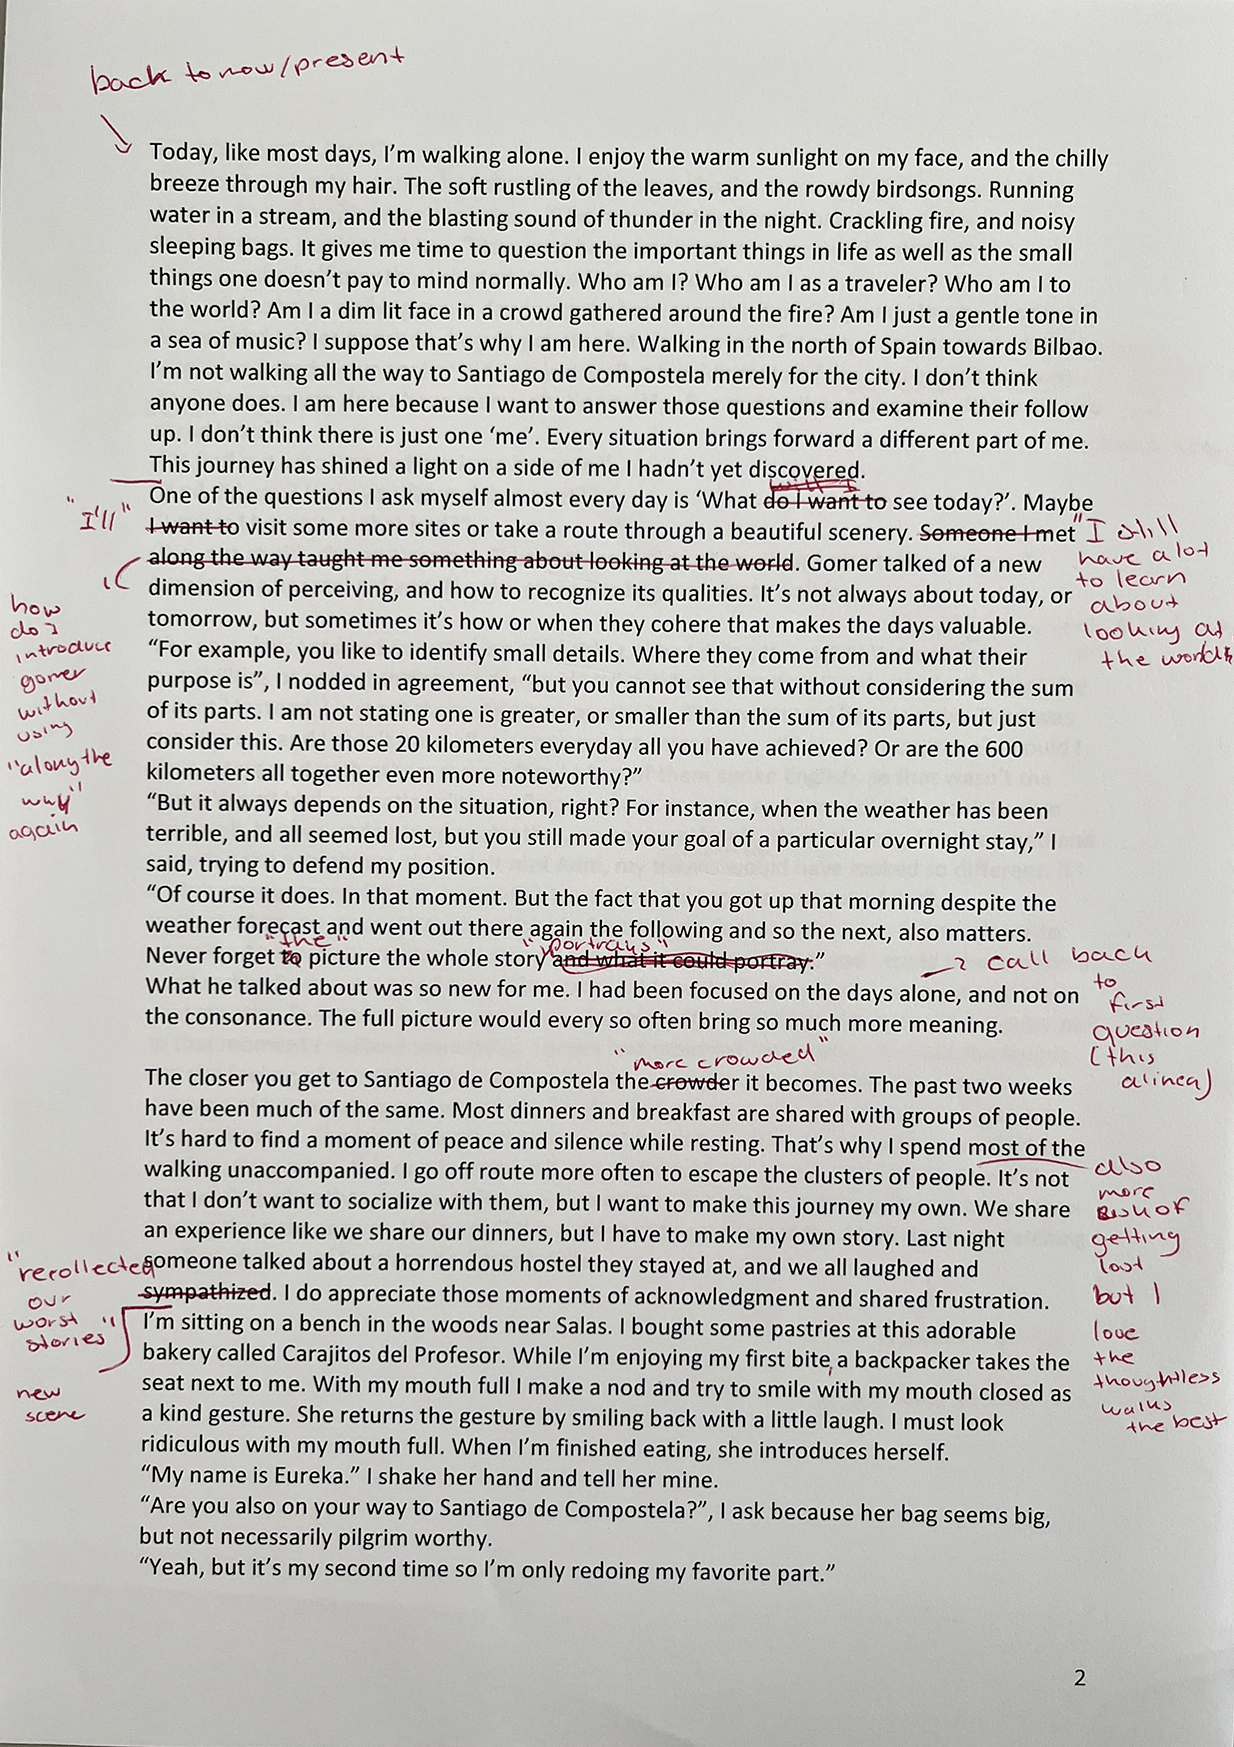 back to now/present
Today, like most days, I'm walking alone. I enjoy the warm sunlight on my face, and the chilly
breeze through my hair. The soft rustling of the leaves, and the rowdy birdsongs. Running
water in a stream, and the blasting sound of thunder in the night. Crackling fire, and noisy
sleeping bags. It gives me time to question the important things in life as well as the small
things one doesn't pay to mind normally. Who am I? Who am I as a traveler? Who am I to
the world? Am I a dim lit face in a crowd gathered around the fire? Am I just a gentle tone in
a sea of music? I suppose that's why I am here. Walking in the north of Spain towards Bilbao.
I'm not walking all the way to Santiago de Compostela merely for the city. I don't think
anyone does. I am here because I want to answer those questions and examine their follow
up. I don't think there is just one 'me'. Every situation brings forward a different part of me.
This journey has shined a light on a side of me I hadn't yet discovered.
will I
One of the questions I ask myself almost every day is 'What do I want to see today?'. Maybe
"I'll"
I want to visit some more sites or take a route through a beautiful scenery. Someone I met
"I still
have a lot
to learn
about
looking at
the world"
along the way taught me something about looking at the world. Gomer talked of a new
dimension of perceiving, and how to recognize its qualities. It's not always about today, or
tomorrow, but sometimes it's how or when they cohere that makes the days valuable.
how
do I
introduce
gomer
without
using
"along the
way"
again
"For example, you like to identify small details. Where they come from and what their
purpose is", I nodded in agreement, "but you cannot see that without considering the sum
of its parts. I am not stating one is greater, or smaller than the sum of its parts, but just
consider this. Are those 20 kilometers everyday all you have achieved? Or are the 600
kilometers all together even more noteworthy?"
"But it always depends on the situation, right? For instance, when the weather has been
terrible, and all seemed lost, but you still made your goal of a particular overnight stay," I
said, trying to defend my position.
"Of course it does. In that moment. But the fact that you got up that morning despite the
weather forecast and went out there again the following and so the next, also matters.
"the" "portrays"
Never forget to picture the whole story and what it could portray."
? call back
to
first
question
(this
alinea)
What he talked about was so new for me. I had been focused on the days alone, and not on
the consonance. The full picture would every so often bring so much more meaning.
"more crowded"
The closer you get to Santiago de Compostela the crowder it becomes. The past two weeks
have been much of the same. Most dinners and breakfast are shared with groups of people.
It's hard to find a moment of peace and silence while resting. That's why I spend most of the
walking unaccompanied. I go off route more often to escape the clusters of people. It's not
that I don't want to socialize with them, but I want to make this journey my own. We share
an experience like we share our dinners, but I have to make my own story. Last night
also
more
risk of
getting
lost
but I
love
the
thoughtless
walks
the best
someone talked about a horrendous hostel they stayed at, and we all laughed and
"recollected
our
worst
stories"
sympathized. I do appreciate those moments of acknowledgment and shared frustration.
new
scene
I'm sitting on a bench in the woods near Salas. I bought some pastries at this adorable
bakery called Carajitos del Profesor. While I'm enjoying my first bite, a backpacker takes the
seat next to me. With my mouth full I make a nod and try to smile with my mouth closed as
a kind gesture. She returns the gesture by smiling back with a little laugh. I must look
ridiculous with my mouth full. When I'm finished eating, she introduces herself.
"My name is Eureka." I shake her hand and tell her mine.
"Are you also on your way to Santiago de Compostela?", I ask because her bag seems big,
but not necessarily pilgrim worthy.
"Yeah, but it's my second time so I'm only redoing my favorite part."
2